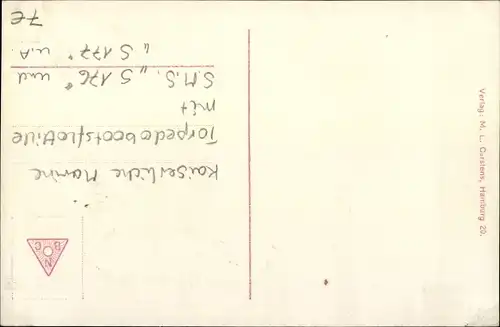 Kaiserliche Marine
Torpedobootsflottille
mit
S.M.S. „S 176" und
„S 177" u.A.
7€
Verlag: M. L. Carstens, Hamburg 20.
N
B C